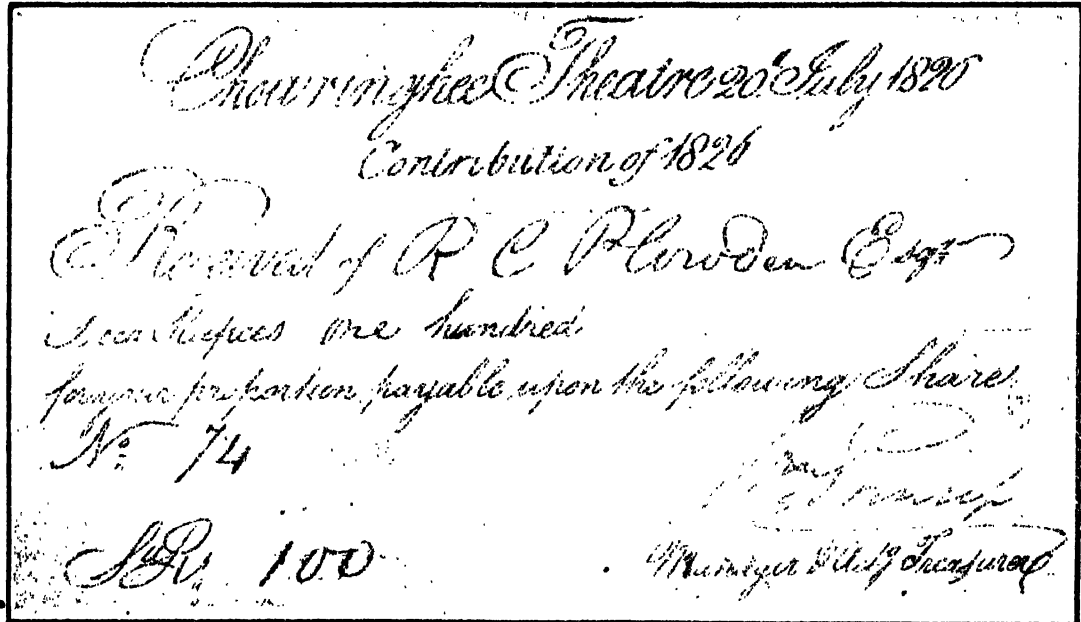 Chowringhee Theatre 20 July 1826
Contribution of 1826
Received of R C Plowden Esqr
Sicca Rupees one hundred
for your proportion payable upon the following Share
No 74
SaRs 100
Manager & Actg Treasurer